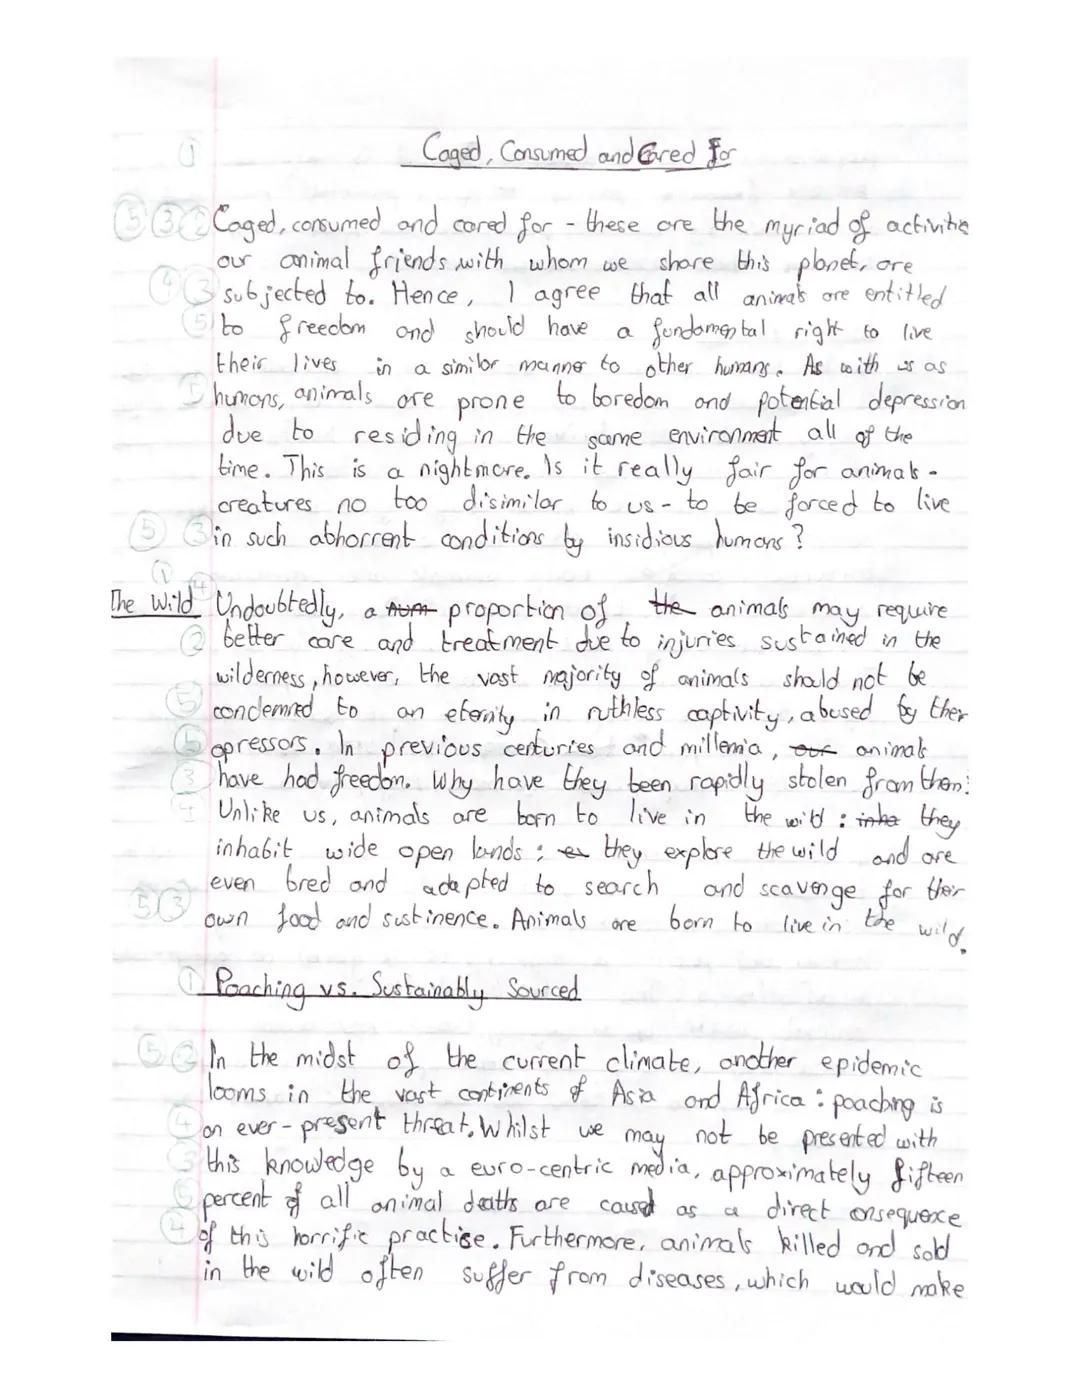 ① Caged, Consumed and Cared For
⑤ ③ ② Caged, consumed and cared for - these are the myriad of activitie
our animal friends, with whom we share this planet, are
④ ③ subjected to. Hence, I agree that all animals are entitled
⑤ to freedom and should have a fundamental right to live
their lives in a similar manner to other humans. As with us as
⑤ humans, animals are prone to boredom and potential depression
due to residing in the same environment all of the
time. This is a nightmare. Is it really fair for animals -
creatures no too disimilar to us - to be forced to live
⑤ ③ in such abhorrent conditions by insidious humans?
①
The Wild ④ Undoubtedly, a num proportion of the animals may require
② better care and treatment due to injuries sustained in the
wilderness, however, the vast majority of animals should not be
⑤ condemned to an eternity in ruthless captivity, abused by ther
opressors. In previous centuries and millemia, our animals
③ have had freedom. Why have they been rapidly stolen from them?
④ Unlike us, animals are born to live in the wild : inha they
inhabit wide open lands ; ex they explore the wild and are
even bred and adapted to search and scavenge for their
⑤ ③ own food and sustinence. Animals are born to live in the wild.
① Poaching vs. Sustainably Sourced
⑤ ② In the midst of the current climate, another epidemic
looms in the vast continents of Asia and Africa : poaching is
④ an ever-present threat. Whilst we may not be presented with
③ this knowledge by a euro-centric media, approximately fifteen
⑤ percent of all animal deaths are caused as a direct consequence
④ of this horrific practise. Furthermore, animals killed and sold
in the wild often suffer from diseases, which would make